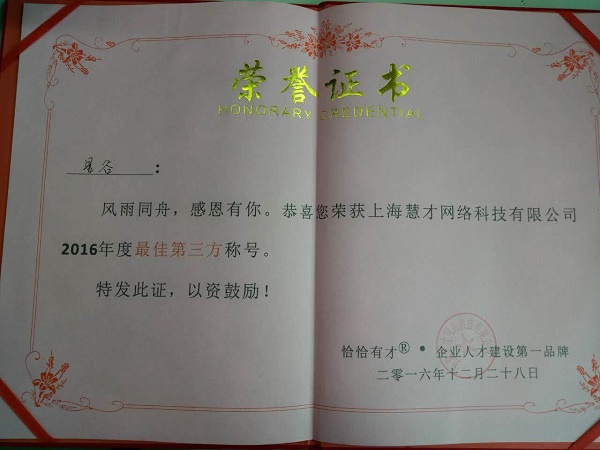 荣誉证书
HONORARY CREDENTIAL
星谷：
风雨同舟，感恩有你。恭喜您荣获上海慧才网络科技有限公司
2016年度最佳第三方称号。
特发此证，以资鼓励！
恰恰有才®•企业人才建设第一品牌
二零一六年十二月二十八日